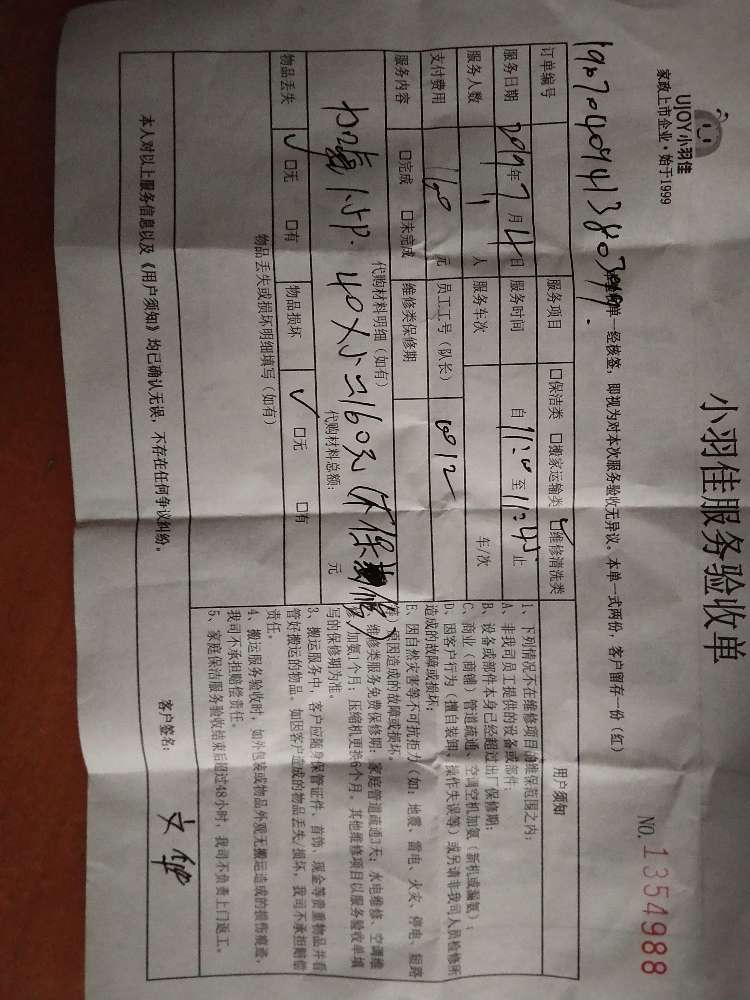 UJOY小羽佳
家政上市企业·始于1999
小羽佳服务验收单
NO.1354988
单一经核签,即视为对本次服务验收无异议。本单一式两份,客户留存一份(红)
订单编号
服务项目 □保洁类 □搬家运输类 ☑维修清洗类
服务日期 年7月4日 服务时间 自11:20至11:45止
服务人数 1人 服务车次 车/次
支付费用 160元 员工工号(队长) 6012
服务内容 □完成 □未完成 维修类保修期
代购材料明细(如有)
加氟 40×4=160元 不保
代购材料总额: 元
物品丢失 ☑无 □有 物品损坏 ☑无 □有
物品丢失或损坏明细填写(如有)
用户须知
1、下列情况不在维修项目的维保范围之内:
A、非我司员工提供的设备或部件;
B、设备或部件本身已经超过出厂保修期;
C、商业(商铺)管道疏通、空调空机加氨(新机或漏氨);
D、因客户行为(擅自装卸、操作失误等)或另请非我司人员检修所
造成的故障或损坏;
E、因自然灾害等不可抗拒力(如:地震、雷电、火灾、停电、短路
等)原因造成的故障或损坏。
维修类服务免费保修期:家庭管道疏通3天;水电维修、空调维
加氨1个月;压缩机更换6个月。其他维修项目以服务验收单填
写的保修期为准。
3、搬运服务中,客户应随身保管证件、首饰、现金等贵重物品并看
管好搬运的物品。如因客户造成的物品丢失/损坏,我司不承担赔偿
责任。
4、搬运服务验收时,如外包装或物品外观无搬运造成的损伤痕迹,
我司不承担赔偿责任。
5、家庭保洁服务验收结束后超过48小时,我司不负责上门返工。
本人对以上服务信息以及《用户须知》均已确认无误,不存在任何争议纠纷。
客户签名: